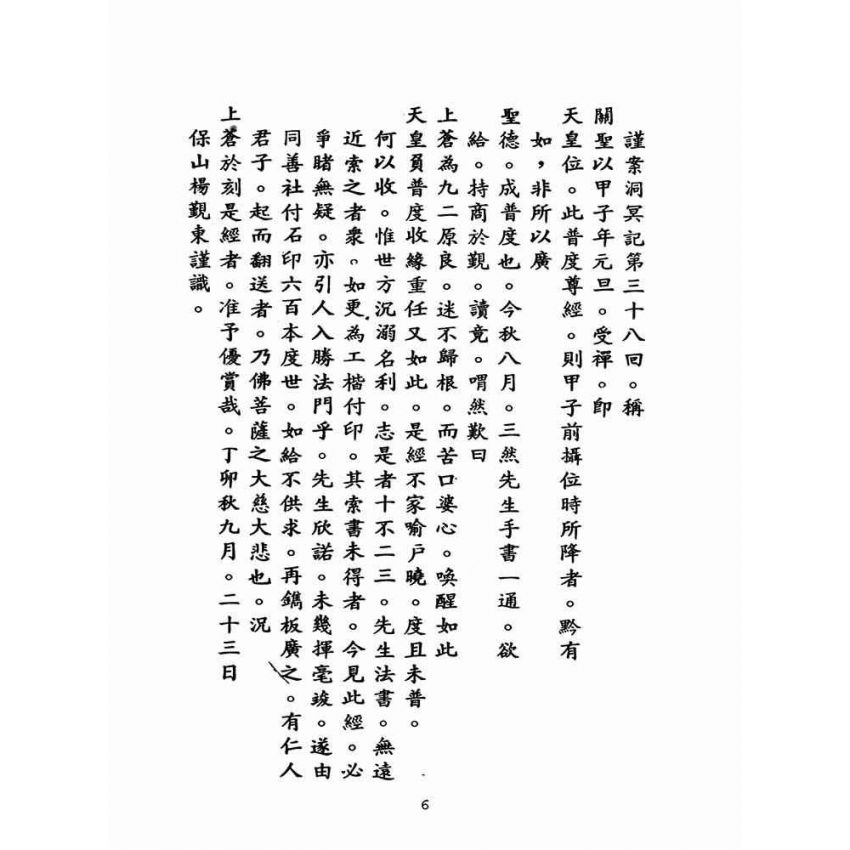 謹案洞冥記第三十八回。稱
關聖以甲子年元旦。受禪。卽
天皇位。此普度尊經。則甲子前攝位時所降者。黔有
如,非所以廣
聖德。成普度也。今秋八月。三然先生手書一通。欲
給。持商於覲。讀竟。喟然歎曰
上蒼為九二原良。迷不歸根。而苦口婆心。喚醒如此
天皇負普度收緣重任又如此。是經不家喻戶曉。度且未普。
何以收。惟世方沉溺名利。志是者十不二三。先生法書。無遠
近索之者衆。如更為工楷付印。其索書未得者。今見此經。必
爭睹無疑。亦引人入勝法門乎。先生欣諾。未幾揮毫竣。遂由
同善社付石印六百本度世。如給不供求。再鐫板廣之。有仁人
君子。起而翻送者。乃佛菩薩之大慈大悲也。況
上蒼於刻是經者。准予優賞哉。丁卯秋九月。二十三日
保山楊覲東謹識。
6